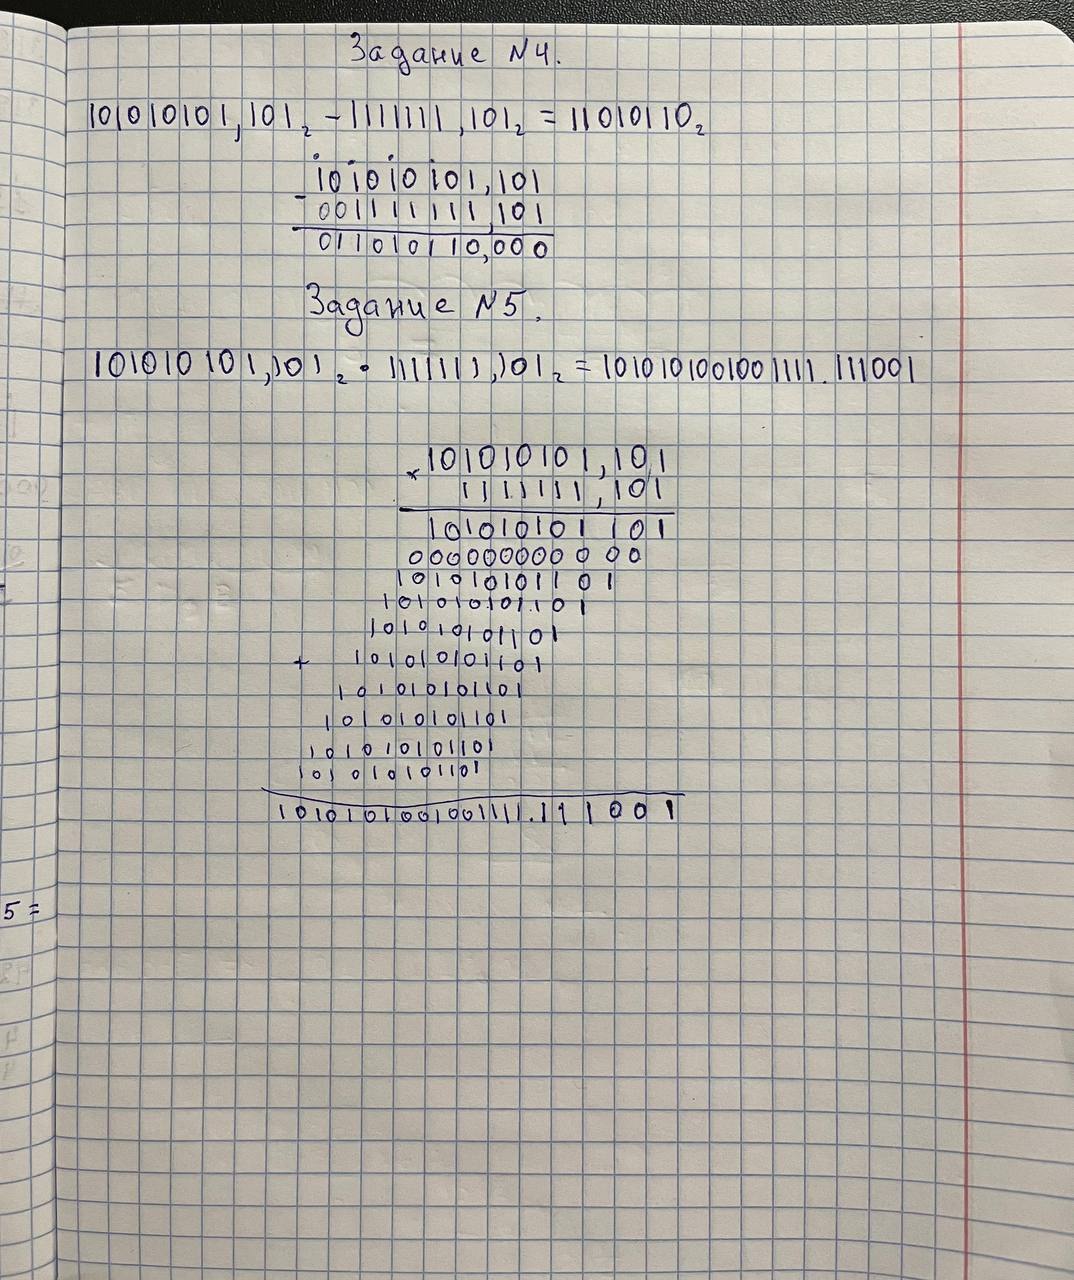 Задание №4.
101010101,101₂ - 1111111,101₂ = 11010110₂
101010101,101
-
001111111,101
011010110,000
Задание №5.
101010101,101₂ • 1111111,101₂ = 1010101001001111.111001
101010101,101
×
1111111,101
101010101 101
000000000 0 00
101010101101
101010101101
101010101101
+ 101010101101
101010101101
101010101101
101010101101
101010101101
1010101001001111.111001
5 =